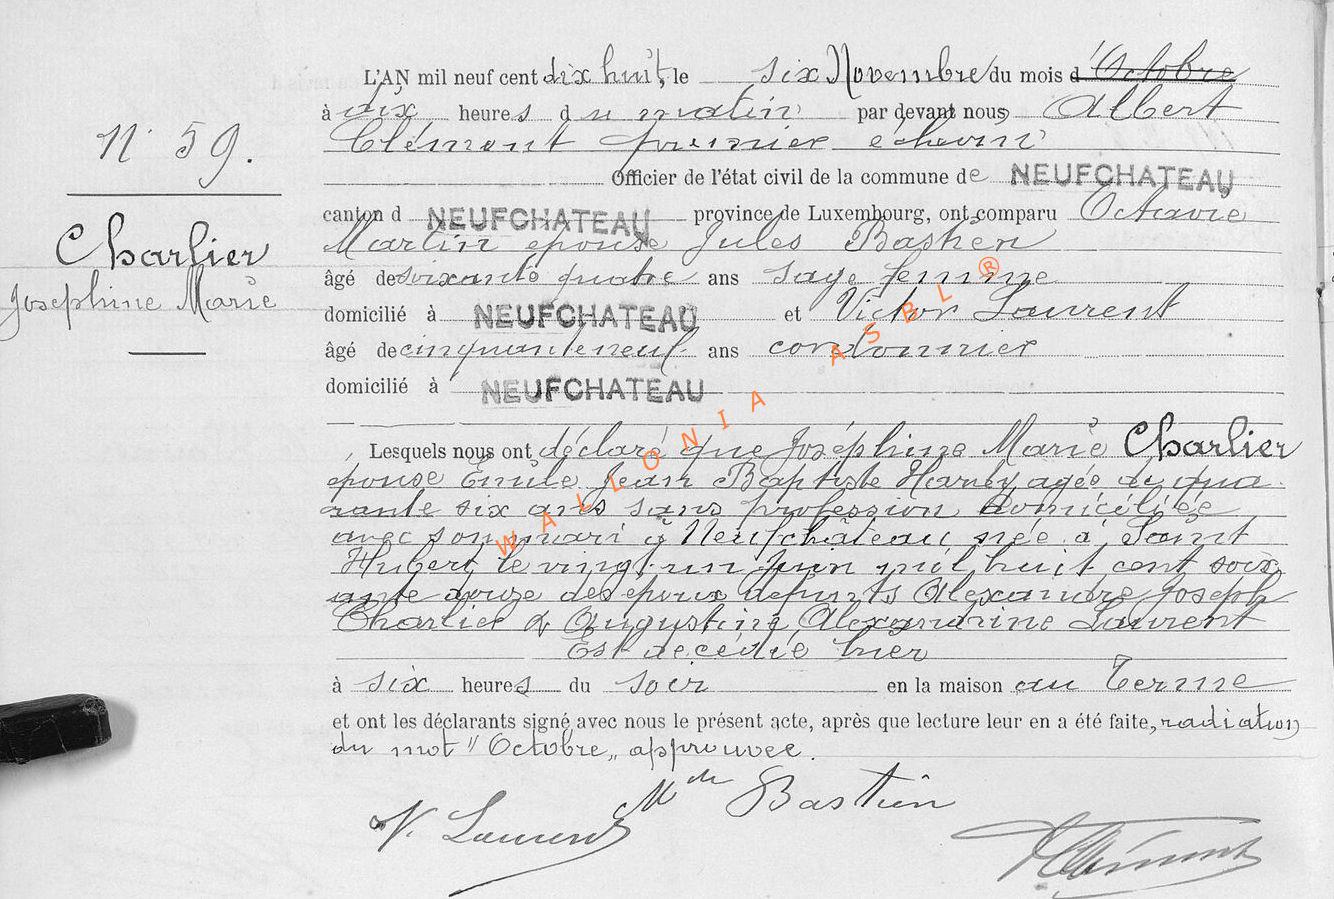 N° 59.
Charlier
Joséphine Marie
L'AN mil neuf cent dix huit, le six Novembre du mois d'Octobre
à dix heures du matin par devant nous Albert
Clément premier échevin
Officier de l'état civil de la commune de NEUFCHATEAU
canton d NEUFCHATEAU province de Luxembourg, ont comparu Octavie
Martin épouse Jules Bastien
âgé de soixante quatre ans sage femme
domicilié à NEUFCHATEAU et Victor Laurent
âgé de cinquante neuf ans cordonnier
domicilié à NEUFCHATEAU
Lesquels nous ont déclaré que Joséphine Marie Charlier
épouse Emile Jean Baptiste agée de qua
rante six ans sans profession domiciliée
avec son mari à Neufchâteau née à Saint
Hubert le vingt-un Juin mil huit cent soix
ante douze des époux défunts Alexandre Joseph
Charlier & Augustine Alexandrine Laurent
Est décédée hier
à six heures du soir en la maison au Terme
et ont les déclarants signé avec nous le présent acte, après que lecture leur en a été faite, radiation
du mot "Octobre" approuvée.
V. Laurent Mde Bastien
AClément
WALLONIA ASBL ®